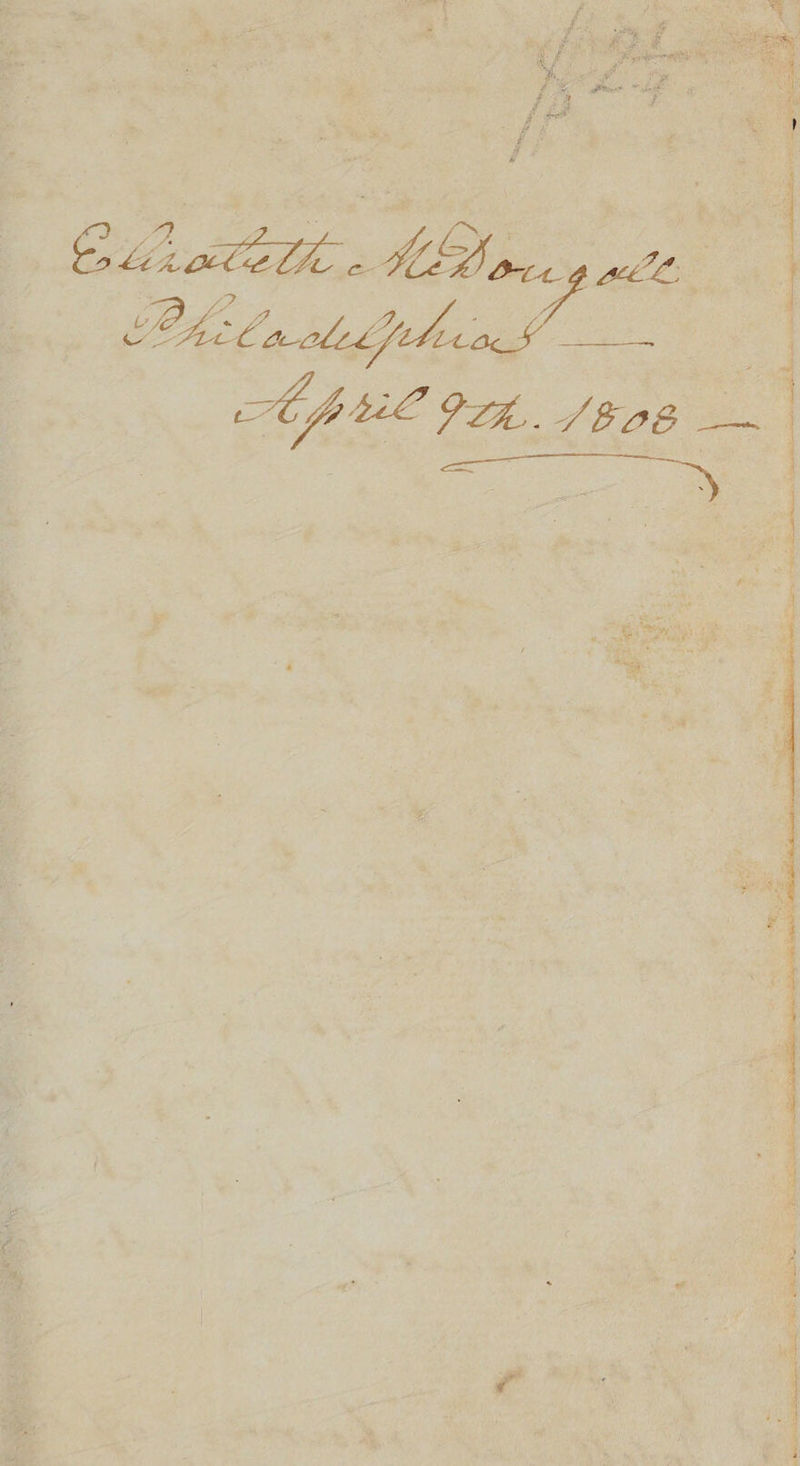 Elizabeth McDougall
Philadelphia —
April 9th. 1808 —